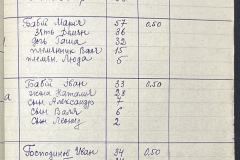 Бабій Марія 57 0,50
зять Демян 36
дочь Гаша 32
племінник Ваня 15
племян. Люда 6
Бабій Иван 33 0,50
жена Наталия 28
сын Александр 7
сын Ваня 6
сын Леонид 2
Господинов Иван 34 0,50